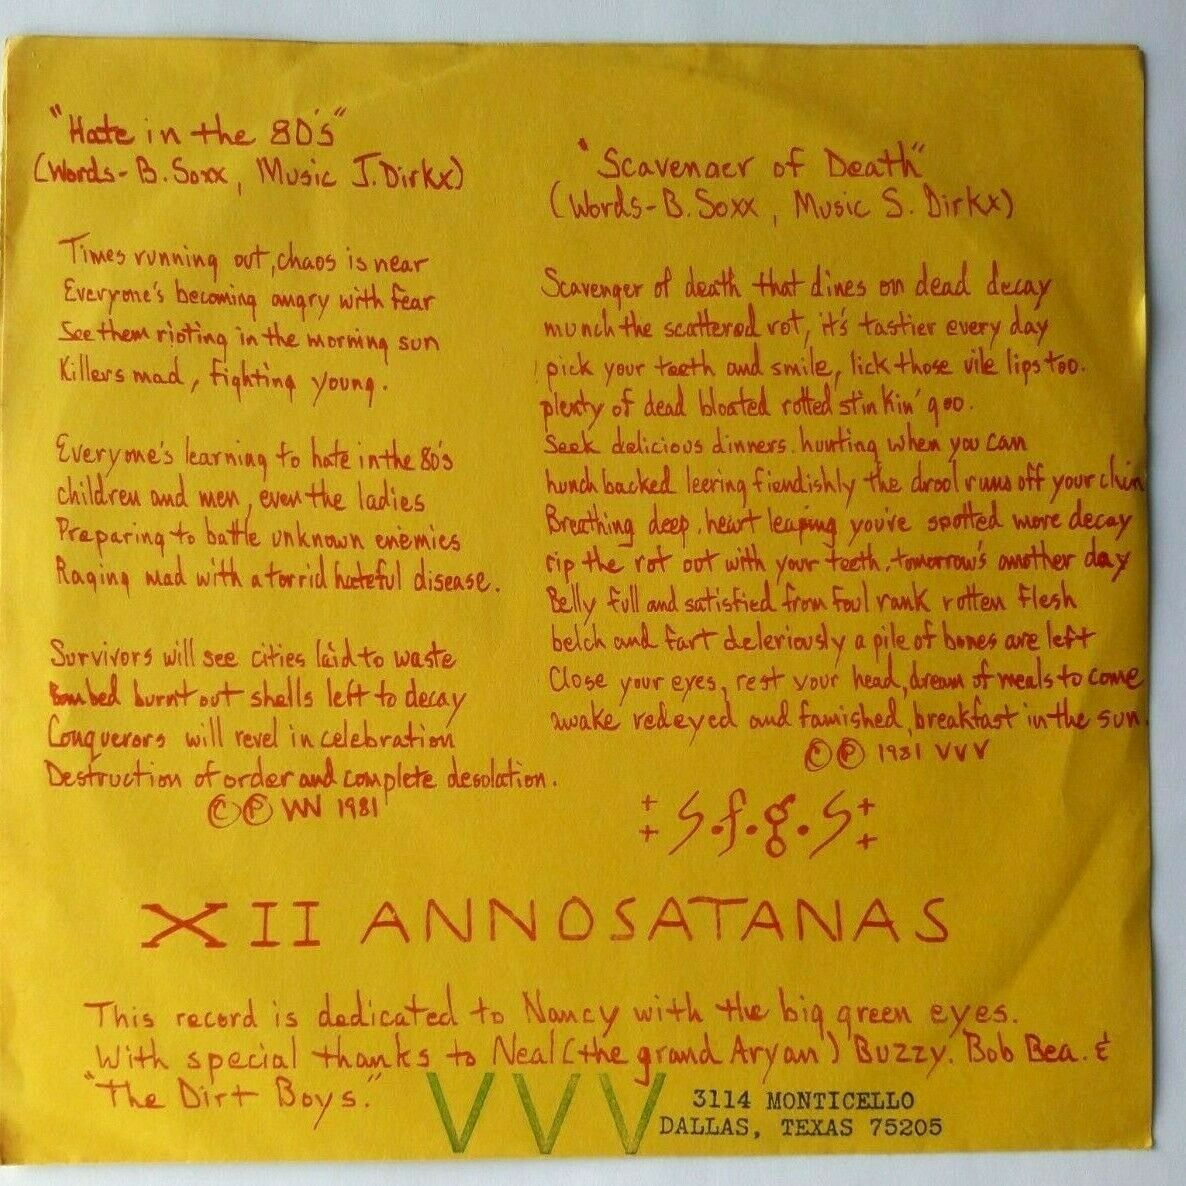 "Hate in the 80's"
(Words- B. Soxx, Music J. Dirkx)
Times running out, chaos is near
Everyone's becoming angry with fear
See them rioting in the morning sun
Killers mad, fighting young.
Everyone's learning to hate in the 80's
children and men, even the ladies
Preparing to battle unknown enemies
Raging mad with a torrid hateful disease.
Survivors will see cities laid to waste
Bombed burnt out shells left to decay
Conquerors will revel in celebration
Destruction of order and complete desolation.
© ℗ VVV 1981
"Scavenger of Death"
(Words- B. Soxx, Music S. Dirkx)
Scavenger of death that dines on dead decay
munch the scattered rot, it's tastier every day
pick your teeth and smile, lick those vile lips too.
plenty of dead bloated rotted stinkin' goo.
Seek delicious dinners. hunting when you can
hunch backed leering fiendishly the drool runs off your chin
Breathing deep, heart leaping you've spotted more decay
rip the rot out with your teeth. tomorrow's another day
Belly full and satisfied from foul rank rotten flesh
belch and fart deleriously a pile of bones are left
Close your eyes, rest your head, dream of meals to come
awake redeyed and famished, breakfast in the sun.
© ℗ 1981 VVV
++ S.f.g.S ++
XII ANNOSATANAS
This record is dedicated to Nancy with the big green eyes.
With special thanks to Neal (the grand Aryan') Buzzy. Bob Bea. &
"The Dirt Boys."
VVV
3114 MONTICELLO
DALLAS, TEXAS 75205